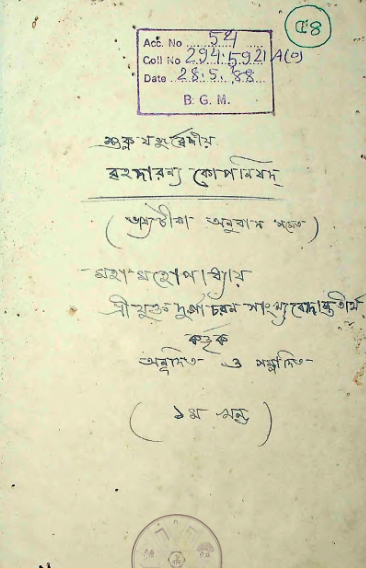 ৫৪
Acc. No ....54....
Coll No 294.5921 A(0)
Date ..28.5.'88..
B. G. M.
শুক্ল যজুর্ব্বেদীয়
বৃহদারণ্য কোপনিষদ্
(ভাষ্যটীকা অনুবাদ সমেত)
মহামহোপাধ্যায়
শ্রীযুক্ত দুর্গাচরন সাংখ্যবেদান্ততীর্থ
কর্ত্তৃক
অনূদিত ও সম্পাদিত
(১ম